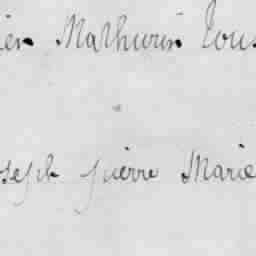 ien Mathurin Tous
oseph pierre Marie